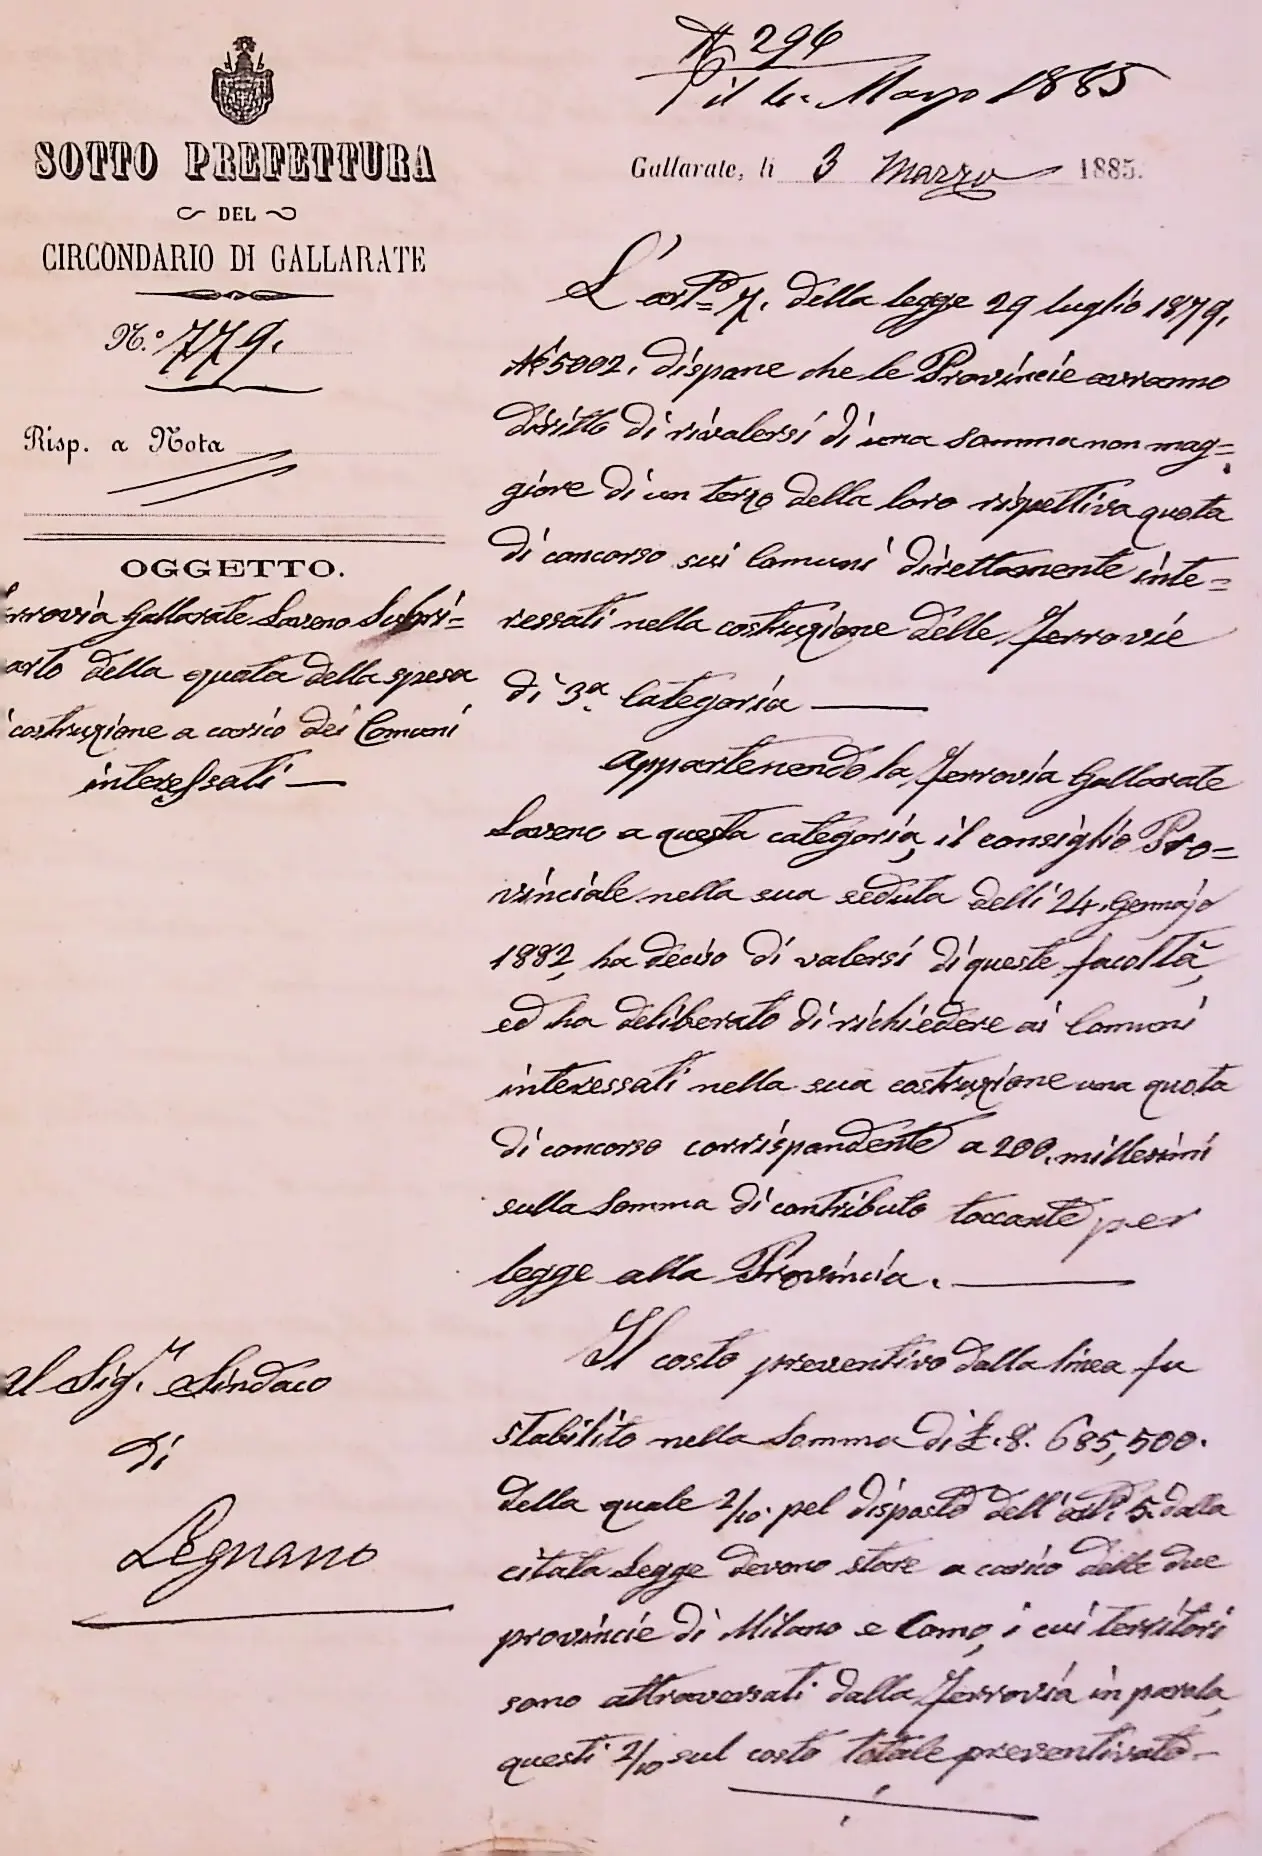 N 296
il 4. Marzo 1885
SOTTO PREFETTURA
DEL
CIRCONDARIO DI GALLARATE
N.° 779.
Risp. a Nota
OGGETTO.
errovia Gallarate Laveno Subri=
arto della quota della spesa
i costruzione a carico dei Comuni
interessati —
Al Sig.r Sindaco
di
Legnano
Gallarate, li 3 Marzo 1885.
L'art.° 7. della legge 29 luglio 1879,
N° 5002, dispone che le Provincie avranno
diritto di rivalersi di una somma non mag=
giore di un terzo della loro rispettiva quota
di concorso sui Comuni direttamente inte=
ressati nella costruzione delle Ferrovie
di 3ª Categoria —
Appartenendo la Ferrovia Gallarate
Laveno a questa categoria, il consiglio Pro=
vinciale nella sua seduta delli 24. Gennajo
1882, ha deciso di valersi di queste facoltà,
ed ha deliberato di richiedere ai Comuni
interessati nella sua costruzione una quota
di concorso corrispondente a 200. millesimi
sulla somma di contributo toccante per
legge alla Provincia. —
Il costo preventivo dalla linea fu
stabilito nella somma di £. 8. 685,500.
della quale 2/10. pel disposto dell'art.° 5. dalla
citata Legge devono stare a carico delle due
provincie di Milano e Como, i cui territori
sono attraversati dalla Ferrovia in parola,
questi 2/10 sul costo totale preventivato -